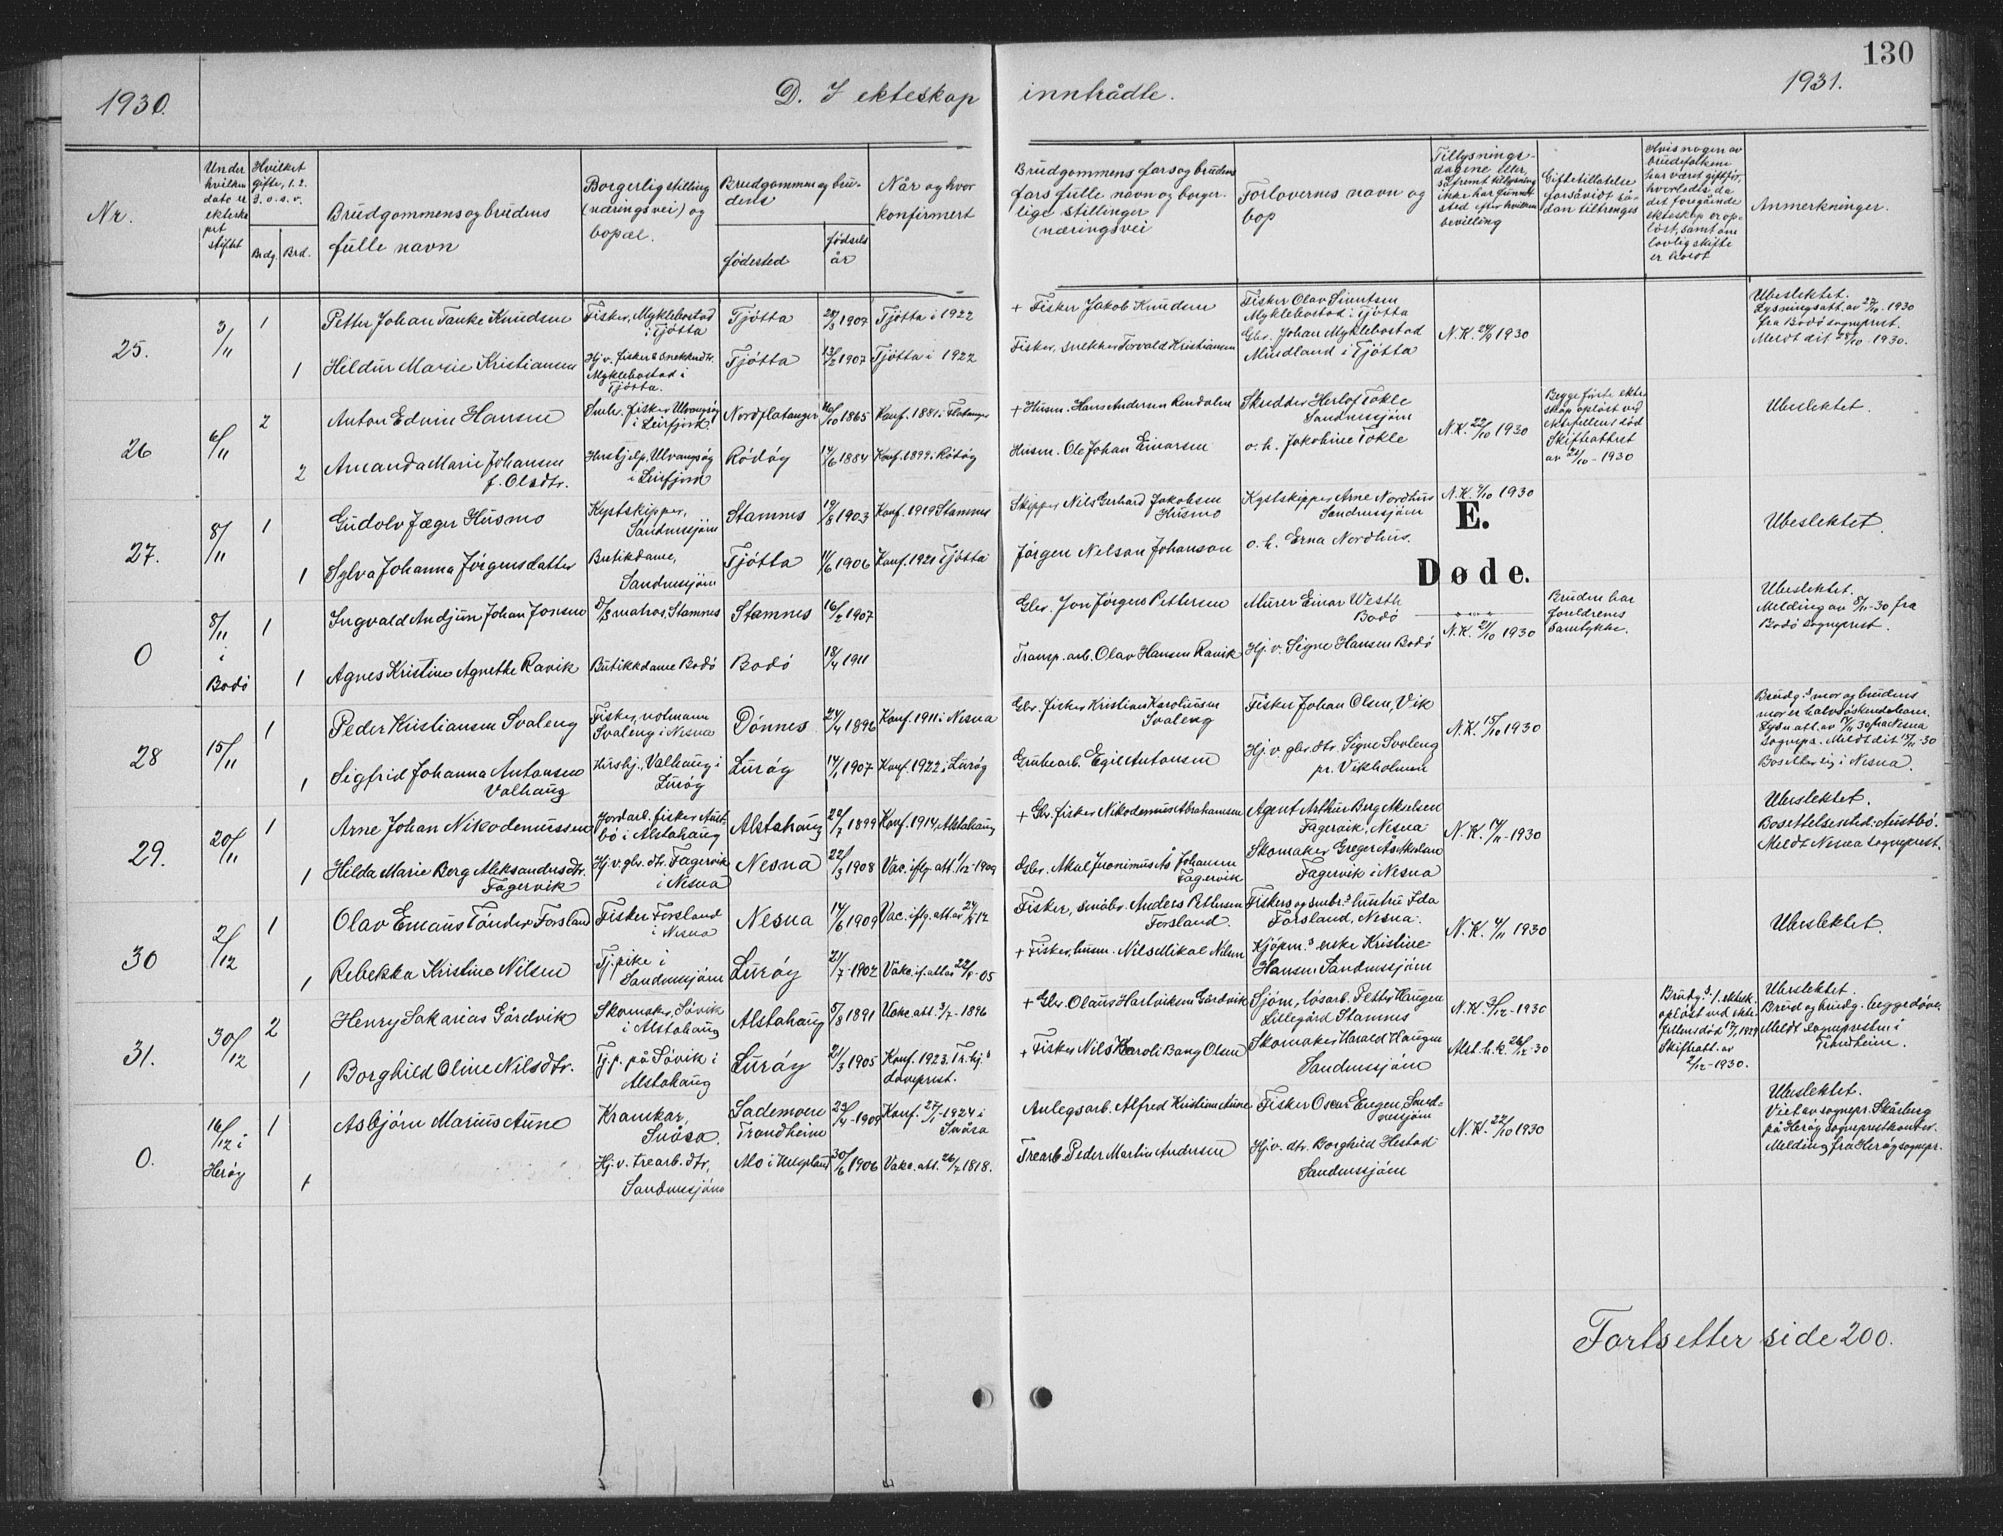 130
1930.
D. I ekteskap inntrådte.
1931.
Nr.
Under hvilken dato er ekteskapet stiftet
Hvilket gifte, 1. 2. 3. o. s. v.
Brdg. Brd.
Brudgommens og brudens fulle navn
Borgerlig stilling (næringsvei) og bopæl.
Brudgommens og brudens
fødested
fødselsår
Når og hvor konfirmert
Brudgommens fars og brudens fars fulle navn og borgerlige stillinger (næringsvei
Forlovernes navn og bop
Tillysningsdagene eller, såfremt tillysning ikke har funnet sted efter hvilken bevilling
Giftetillatelse forsåvidt sådan tiltrenges
Hvis nogen av brudefolkene har været gift før, hvorledes da det foregående ekteskap er opløst, samt om lovlig skifte er holdt
Anmerkninger.
25.
3/11
1
Petter Johan Tanke Knudsen
Fisker, Myklebostad i Tjøtta
Tjøtta
1907
Tjøtta i 1922
+ Fisker Jakob Knudsen
Fisker Olav Sivertsen
Myklebostad i Tjøtta
N.K. 24/9 1930
Ubeslektet.
Lysningsatt. av 27/10 - 1930
fra Bodö sogneprest.
Meldt dit 28/10 - 1930.
1
Hildur Marie Kristiansen
Myklebostad i Tjøtta.
Tjøtta
13/2 1907
Tjøtta i 1922
Fisker, snekker Torvald Kristiansen
Gbr. Johan Myklebostad
Mindland i Tjøtta
26
6/11
2
Anton Edvin Hansen
fisker Ulvangsøy i Leirfjord
Nordflatanger
1865
Konf. 1881 i Flatanger
+ Husm. Hans Andersen Rendalen
Skredder Herlof Tokle
Sandnessjøen
N.K. 22/10 1930
Begge förste ekteskap oplöst ved ektefellens död
Skifteattest av 21/10 - 1930
Ubeslektet.
2
Amanda Marie Johansen
f. Olsdtr.
Husbjelp, Ulvangsøy i Leirfjord
Rödöy
1884
Konf. 1899 i Rödöy
Husm. Ole Johan Einarsen
o. h. Jakobine Tokle
27.
8/11
1
Gudolv Jæger Husmo
Kystskipper, Sandnessjøen
Stamnes
19/8 1903
Konf. 1919 Stamnes
Skipper Nils Gerhard Jakobsen Husmo
Kystskipper Arne Nordhus
Sandnessjøen
1930
E.
Døde.
Ubeslektet.
1
Sylva Johanna Jörgensdatter
Butikdame, Sandnessjøen
Tjøtta
1906
Konf. 1921 Tjøtta
Jörgen Nelson Johanson
o. h. Erna Nordhus.
0
8/11 i Bodö
1
Ingvald Andjun Johan Jonsen
matros, Stamnes
Stamnes
16/2 1907
Gbr. Jon Jörgen Pettersen
Murer Einar Westh
Bodö
N.K. 21/10 1930
Bruden har foreldrenes samtykke.
Ubeslektet.
Melding av 8/11-30 fra
Bodö sogneprest.
1
Agnes Kristine Agnethe Ravik
Butikkdame Bodö
Bodö
18/4 1911
Transp. arb. Olav Hansen Ravik
Hj. v. Signe Hansen Bodö
28
15/11
1
Peder Kristiansen Svaleng
Fisker, notmann
Svaleng i Nesna
Dönnes
24/4 1896
Konf. 1911 i Nesna
Gbr. fisker Kristian Karoliussen Svaleng
Fisker Johan Olsen, Vik
N.K. 15/10 1930
Brudg.s mor og brudens
mor er halvsöskendebarn.
Meldt dit 15/11-30
Bosetter sig i Nesna.
1
Sigfrid Johanna Antonsen
Valhaug
Hushj., Valhaug i Luröy
Luröy
14/1 1907
Konf. 1922 i Luröy
Grubearb. Egil Antonsen
Hj. v. gbr. dtr. Signe Svaleng
pr. Vikholmen
29.
20/11
1
Arne Johan Nikodemussen
Jordarb. fisker Austbö i Alstahaug
Alstahaug
22/7 1899
Konf. 1914, Alstahaug
+ Gbr. fisker Nikodemus Abrahamsen
Agent Arthur Berg Akselsen
Fagervik, Nesna
N.K. 14/11-1930
Ubeslektet.
Bosettelsessted: Austbö.
Meldt Nesna sogneprest.
1
Hilda Marie Berg Aleksandersdtr.
Fagervik
Hj. v. gbr. dtr. Fagervik i Nesna
Nesna
22/3 1908
Vac. iflg. att. 1/12-1909
Gbr. Aksel Johansen Fagervik
Skomaker Greger Ås Akselsen
Fagervik i Nesna
30
2/12
1
Olav Emaus Tönder Forsland
Fisker Forsland i Nesna
Nesna
14/6 1909
Vac. iflg. att. av
Fisker, småbr. Anders Pettersen Forsland.
Fiskers og småbr.s hustru Ida
Forsland, Nesna.
N.K. 4/11 1930
Ubeslektet.
1
Rebekka Kristine Nilsen
Tj. pike i Sandnessjøen
Luröy
21/7-1902
Vakc. if. att. av 22/8-05
+ Fisker, husm. Nils Mikal Nilsen
Kjöpm.s enke Kristine
Hansen Sandnessjøen
31.
30/12
2
Henry Sakarias Gårdvik
Skomaker, Sövik i Alstahaug
Alstahaug
5/8 1891
Vakc. att. 3/7-1896
+ Gbr. Olaus Hartviksen Gårdvik
Sjöm., lösarb. Petter Haugen
Lillegård Stamnes
N.K. 3/12-1930
Brudg.s 1. ektesk.
oplöst ved ektefellens död 1929
Skifteatt. av 2/12-1930.
Ubeslektet.
Brud og brudg. begge döve.
Meldt sognepresten i
Trondheim.
1
Borghild Oline Nilsdtr.
Tj. p. på Sövik i Alstahaug
Luröy
21/3 1905
Konf. 1923. Tr.hj.s
Döveprest.
+ Fisker Nils Karoli Bang Olsen
Skomaker Harald Haugen
Sandnessjøen
Alst. h.k. 26/12-30
0.
16/12 i Heröy
1
Asbjørn Marius Aune
Kranskar, Snåsa.
Lademoen
Trondheim
23/4-1909
Konf. 27/7-1924 i
Snåsa
Anlegsarb. Alfred Kristian Aune
Fisker Oscar Enegen, Sandnessjøen
N.K. 22/10 1930
Ubeslektet.
Viet av sognepr. Skårberg
på Heröy sogneprestkontor.
Melding fra Heröy sognepr.
1
Hj. v. trearb. dtr,
Sandnessjøen
Mo i Helgeland
30/6 1906
Vakc. att. 26/7 1818.
Trearb. Peder Martin Andersen
Hj. v. dtr. Borghild Hestad
Sandnessjøen
Fortsetter side 200.